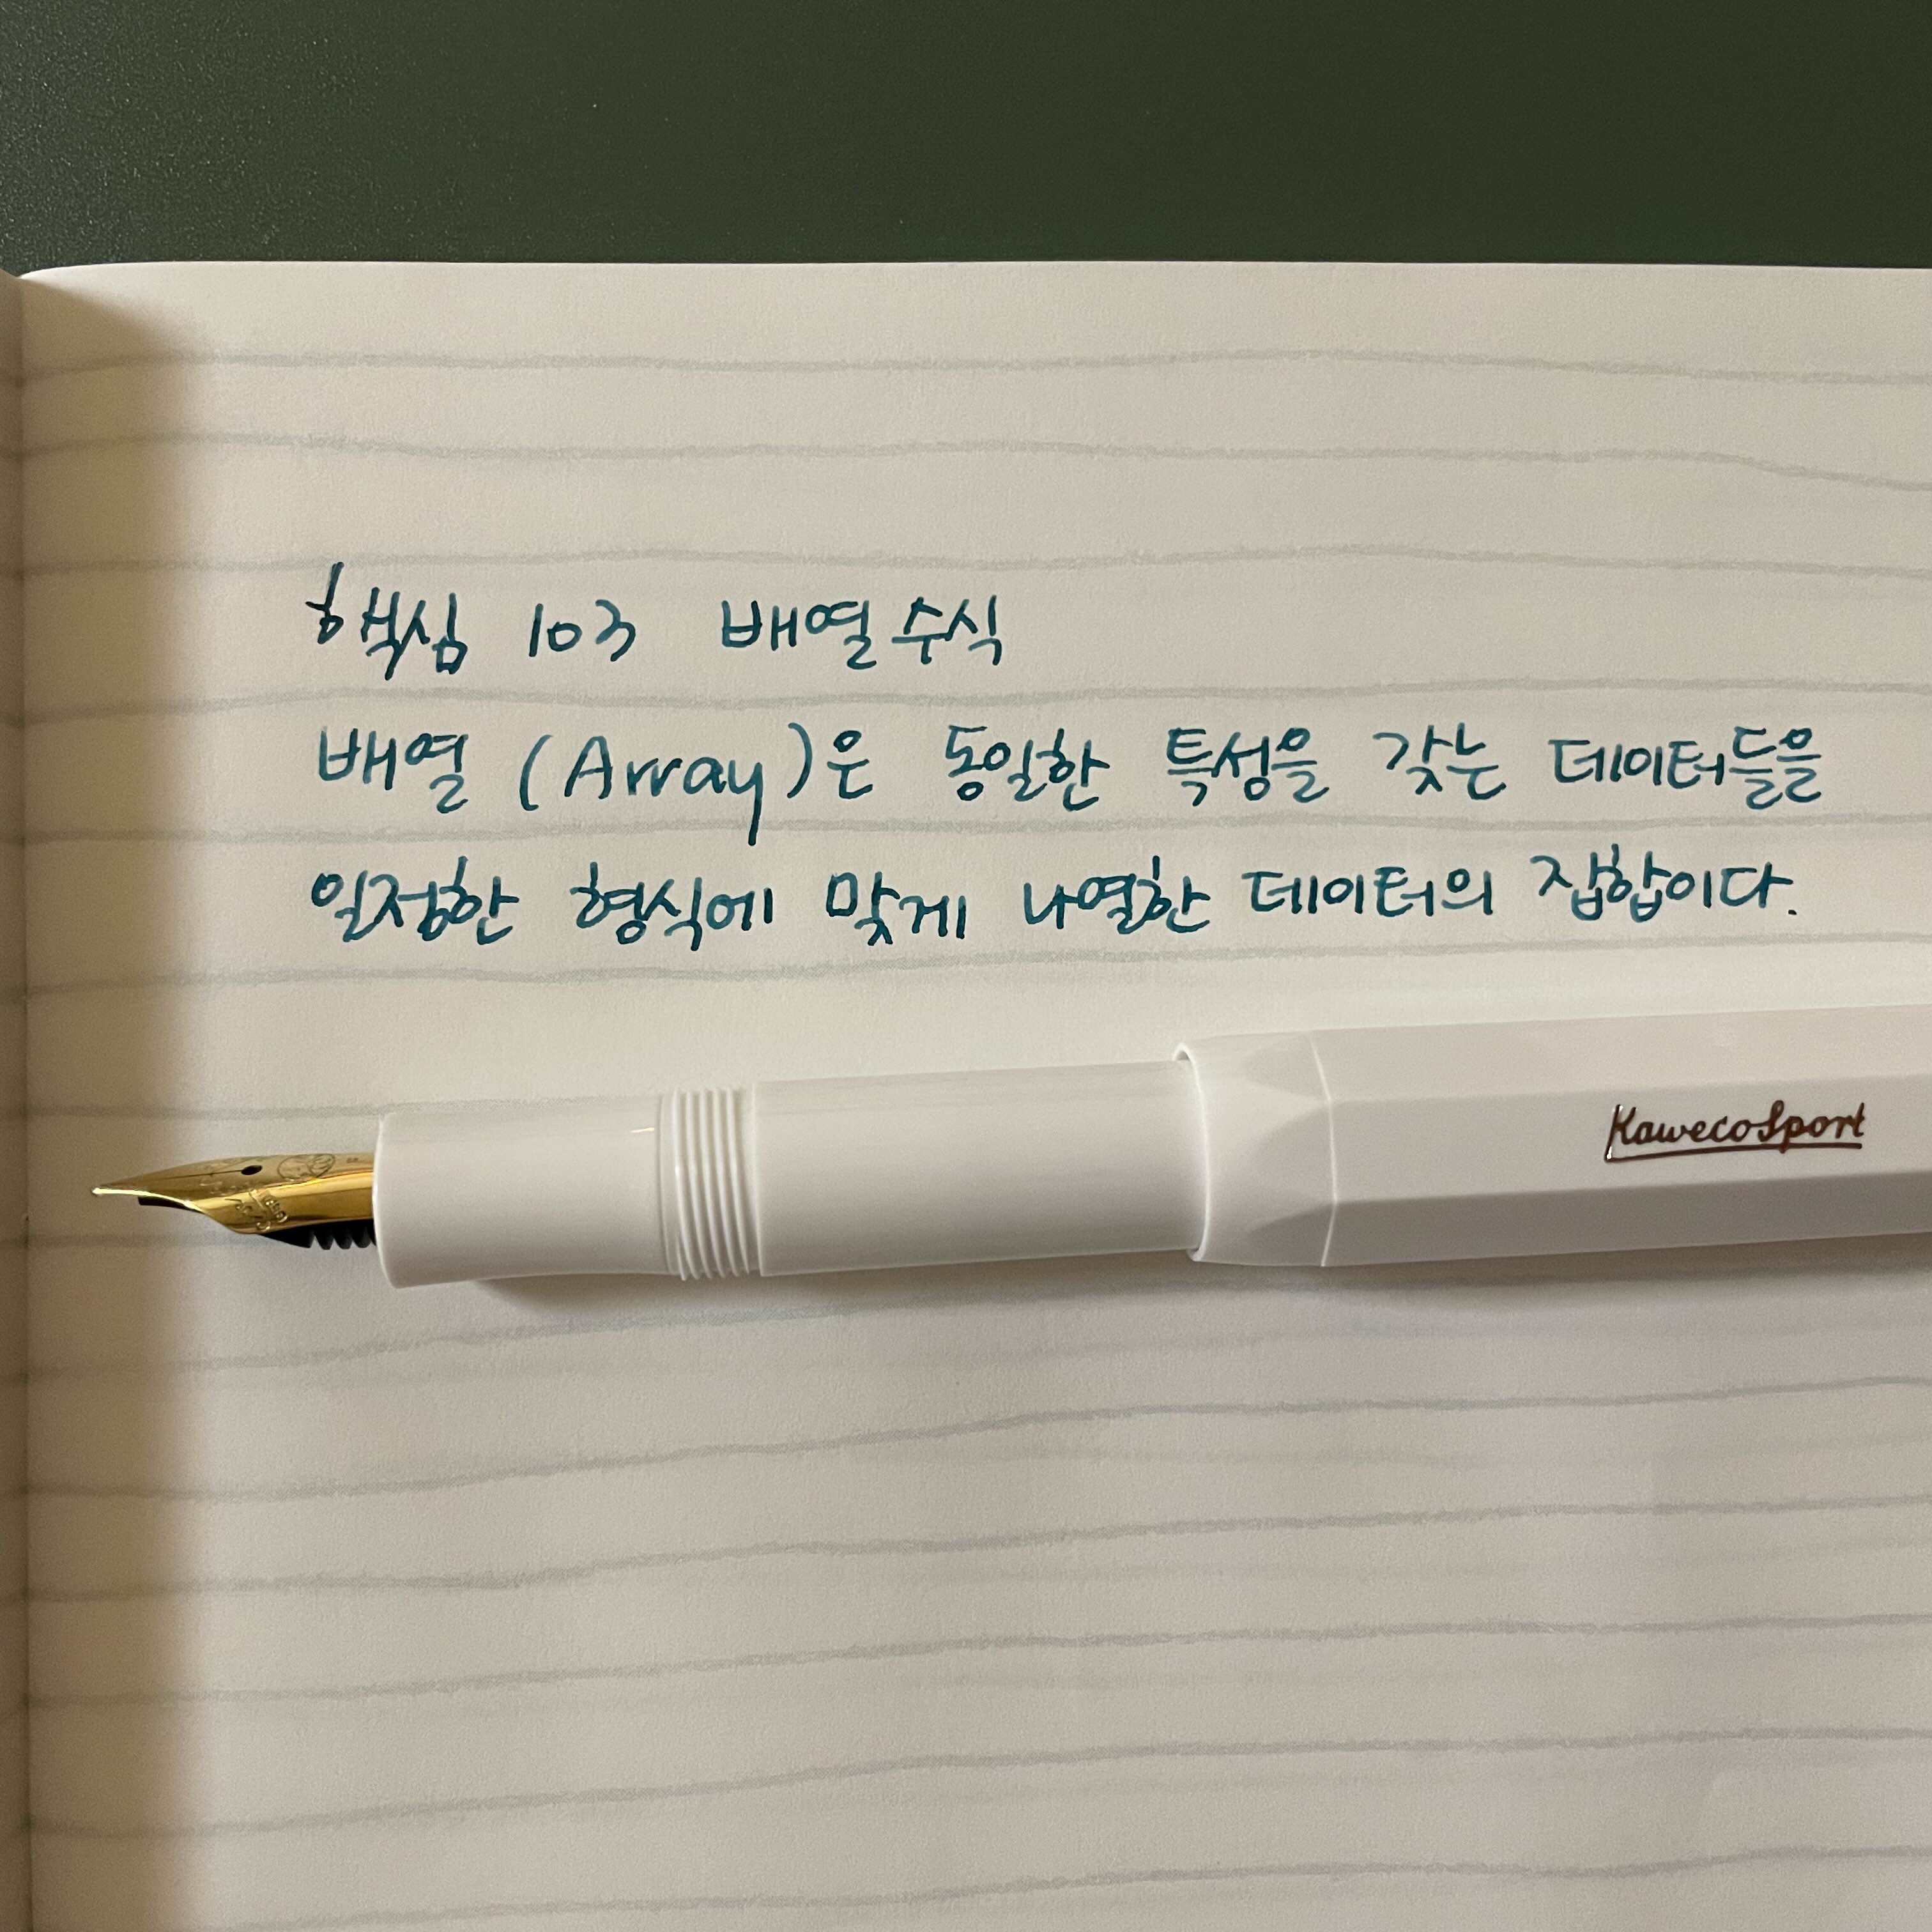 핵심 103 배열 수식
배열 (Array)은 동일한 특성을 갖는 데이터들을
일정한 형식에 맞게 나열한 데이터의 집합이다.
KawecoSport